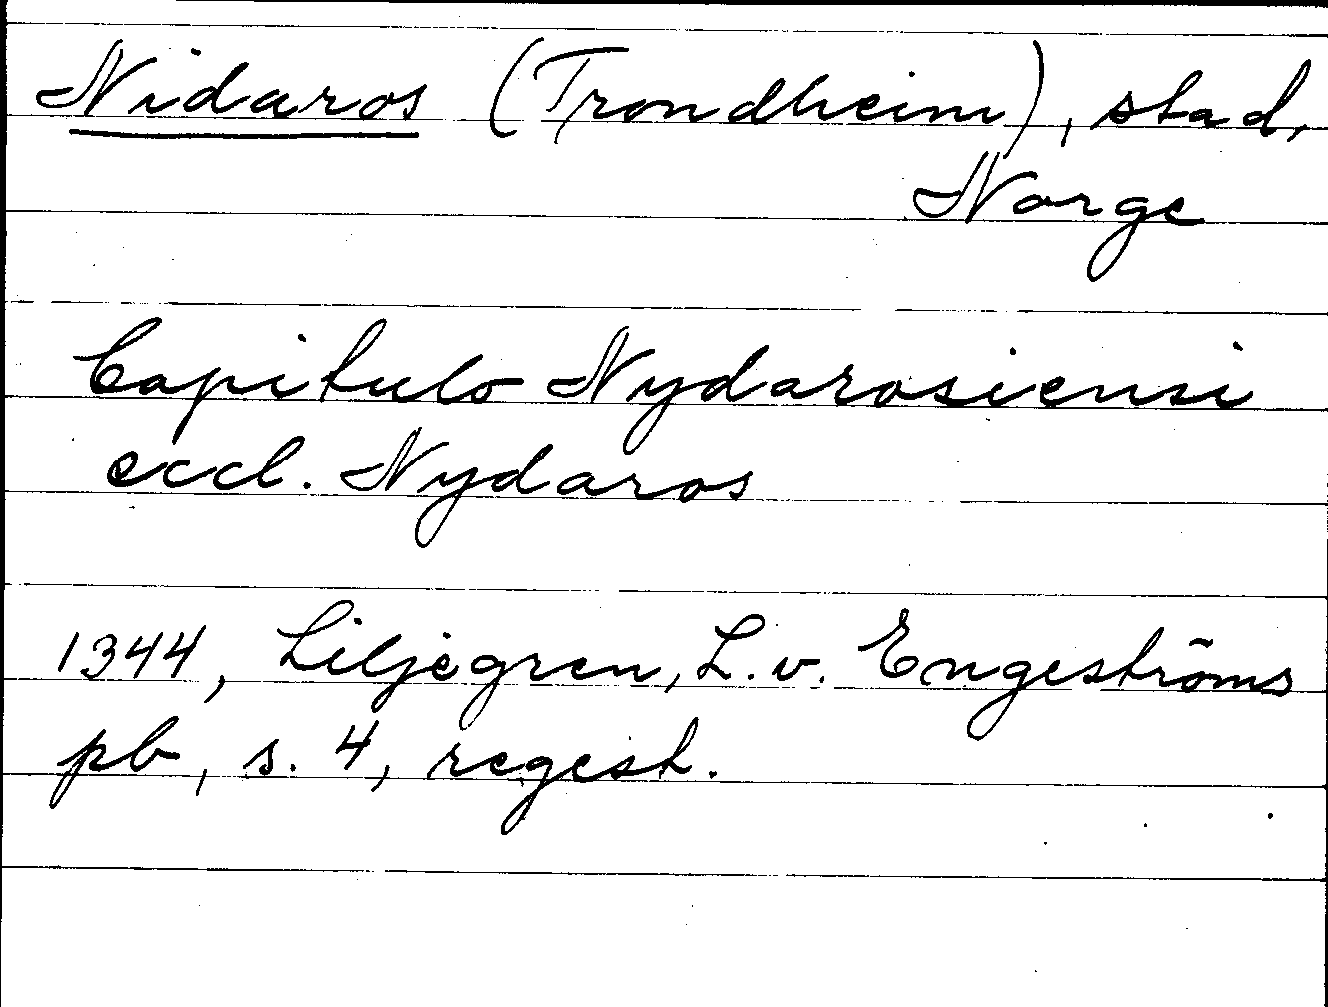 Nidaros (Trondheim), stad,
Norge
Capitulo Nydarosiensi
eccl. Nydaros
1344, Liljegren, L. v. Engeströms
pb, s. 4, regest.